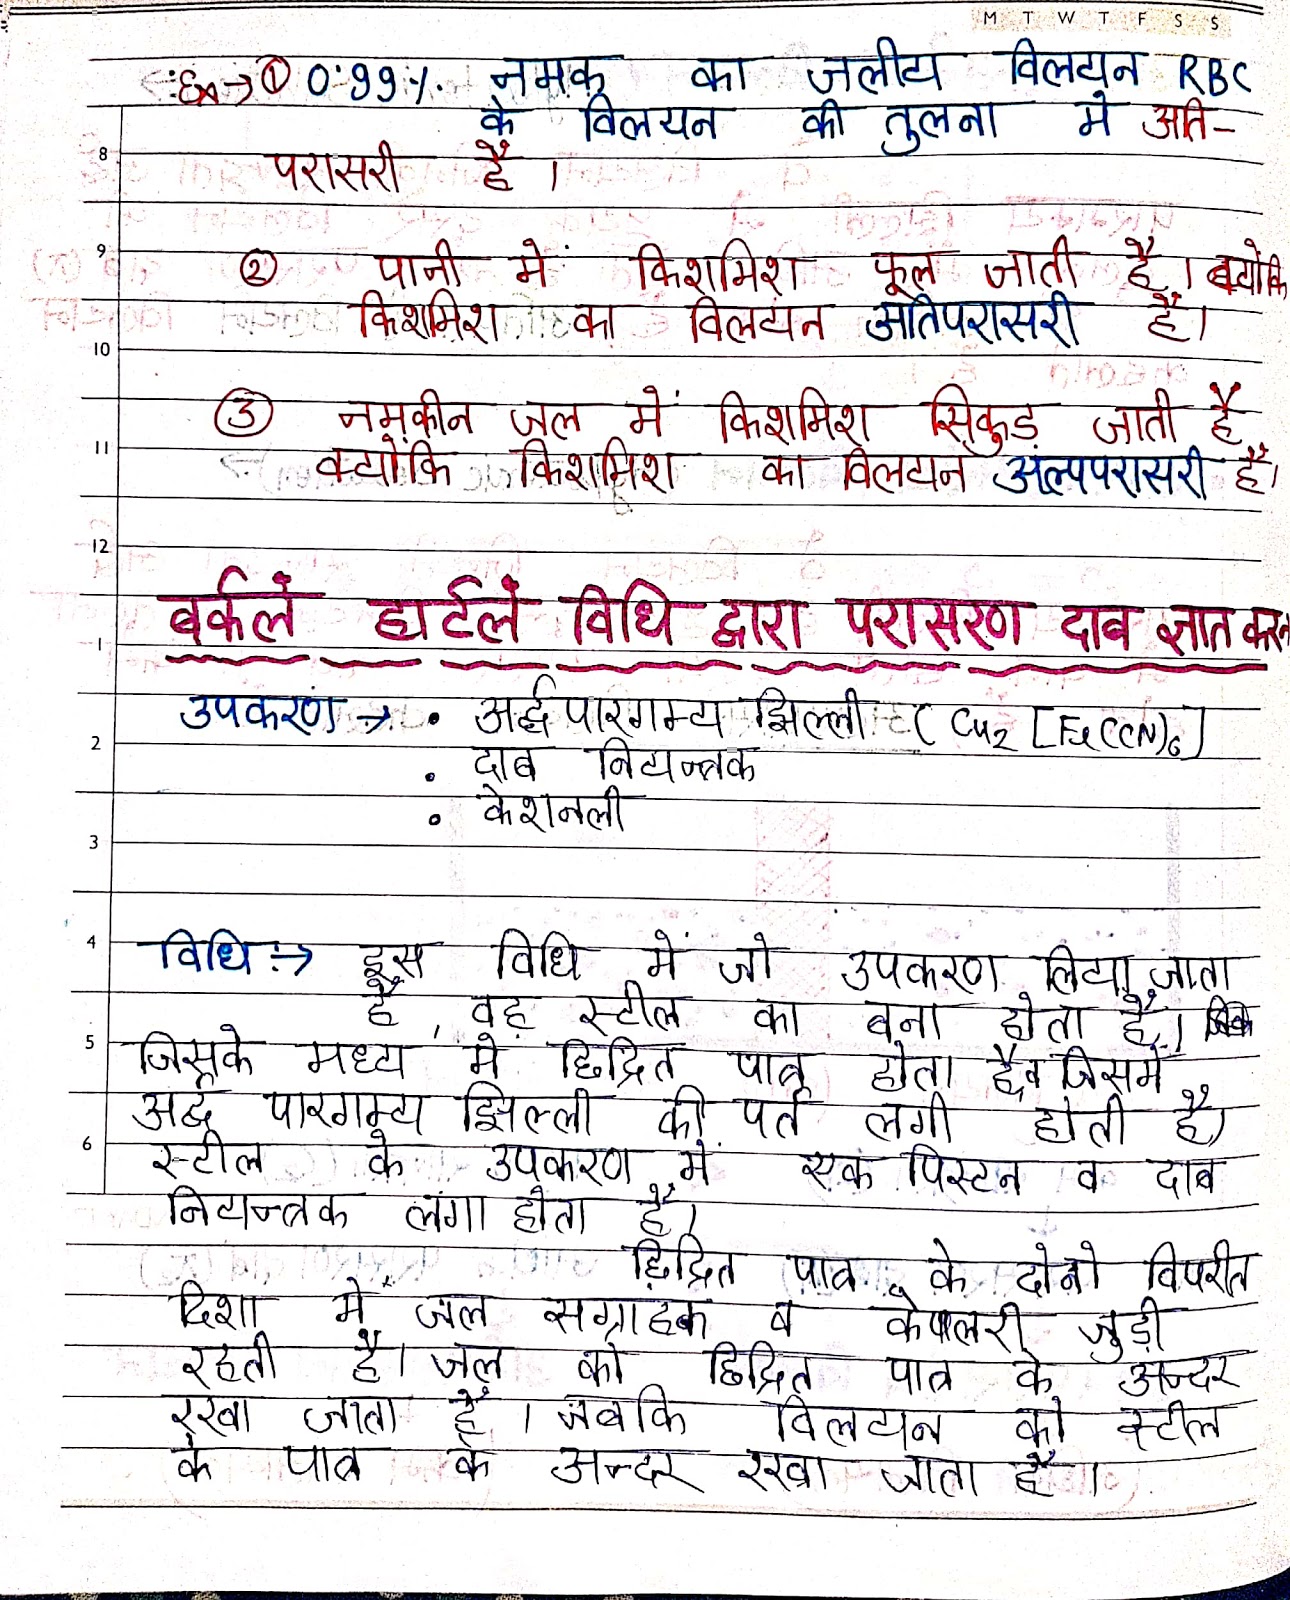 M T W T F S S
:Ex→ ① 0.99%. नमक का जलीय विलयन RBC
के विलयन की तुलना में अति-
8
परासरी है।
9
② पानी में किशमिश फूल जाती है। क्योंकि
किशमिश का विलयन अतिपरासरी है।
10
③ नमकीन जल में किशमिश सिकुड़ जाती है
11
क्योंकि किशमिश का विलयन अल्पपरासरी है।
12
बर्कले हार्टले विधि द्वारा परासरण दाब ज्ञात करन
1
उपकरण → • अर्द्धपारगम्य झिल्ली ( Cu2 [Fe(CN)6]
2
• दाब नियन्त्रक
• केशनली
3
4
विधि :→ इस विधि में जो उपकरण लिया जाता
है, वह स्टील का बना होता है।
5
जिसके मध्य में छिद्रित पात्र होता है व जिसमें
अर्द्ध पारगम्य झिल्ली की पर्त लगी होती है।
6
स्टील के उपकरण में एक पिस्टन व दाब
नियन्त्रक लगा होता है।
छिद्रित पात्र के दोनो विपरीत
दिशा में जल सग्राहक व केपलरी जुड़ी
रहती है। जल को छिद्रित पात्र के अन्दर
रखा जाता है। जबकि विलयन को स्टील
के पात्र के अन्दर रखा जाता है।